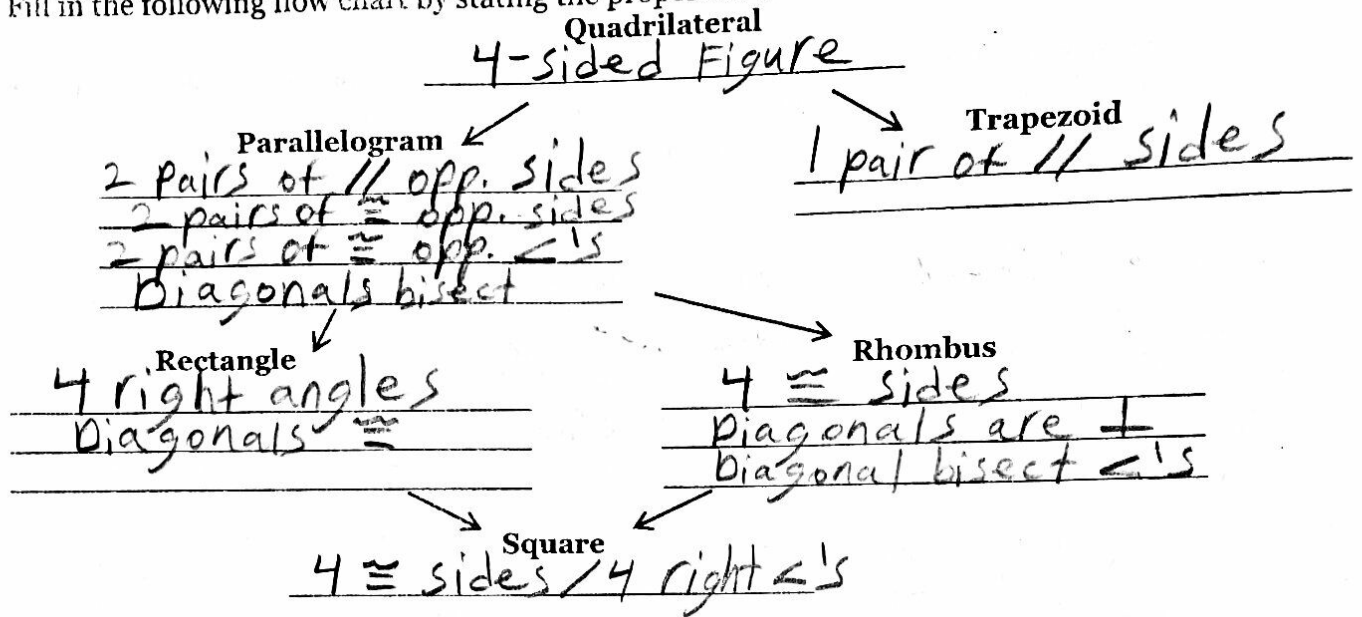 Fill in the following flow chart by stating the
Quadrilateral
4-sided Figure
Parallelogram
2 Pairs of // opp. sides
2 pairs of ≅ opp. sides
2 pairs of ≅ opp. <'s
Diagonals bisect
Trapezoid
1 pair of // sides
Rectangle
4 right angles
Diagonals ≅
Rhombus
4 ≅ sides
Diagonals are ⊥
Diagonal bisect <'s
Square
4 ≅ sides / 4 right <'s